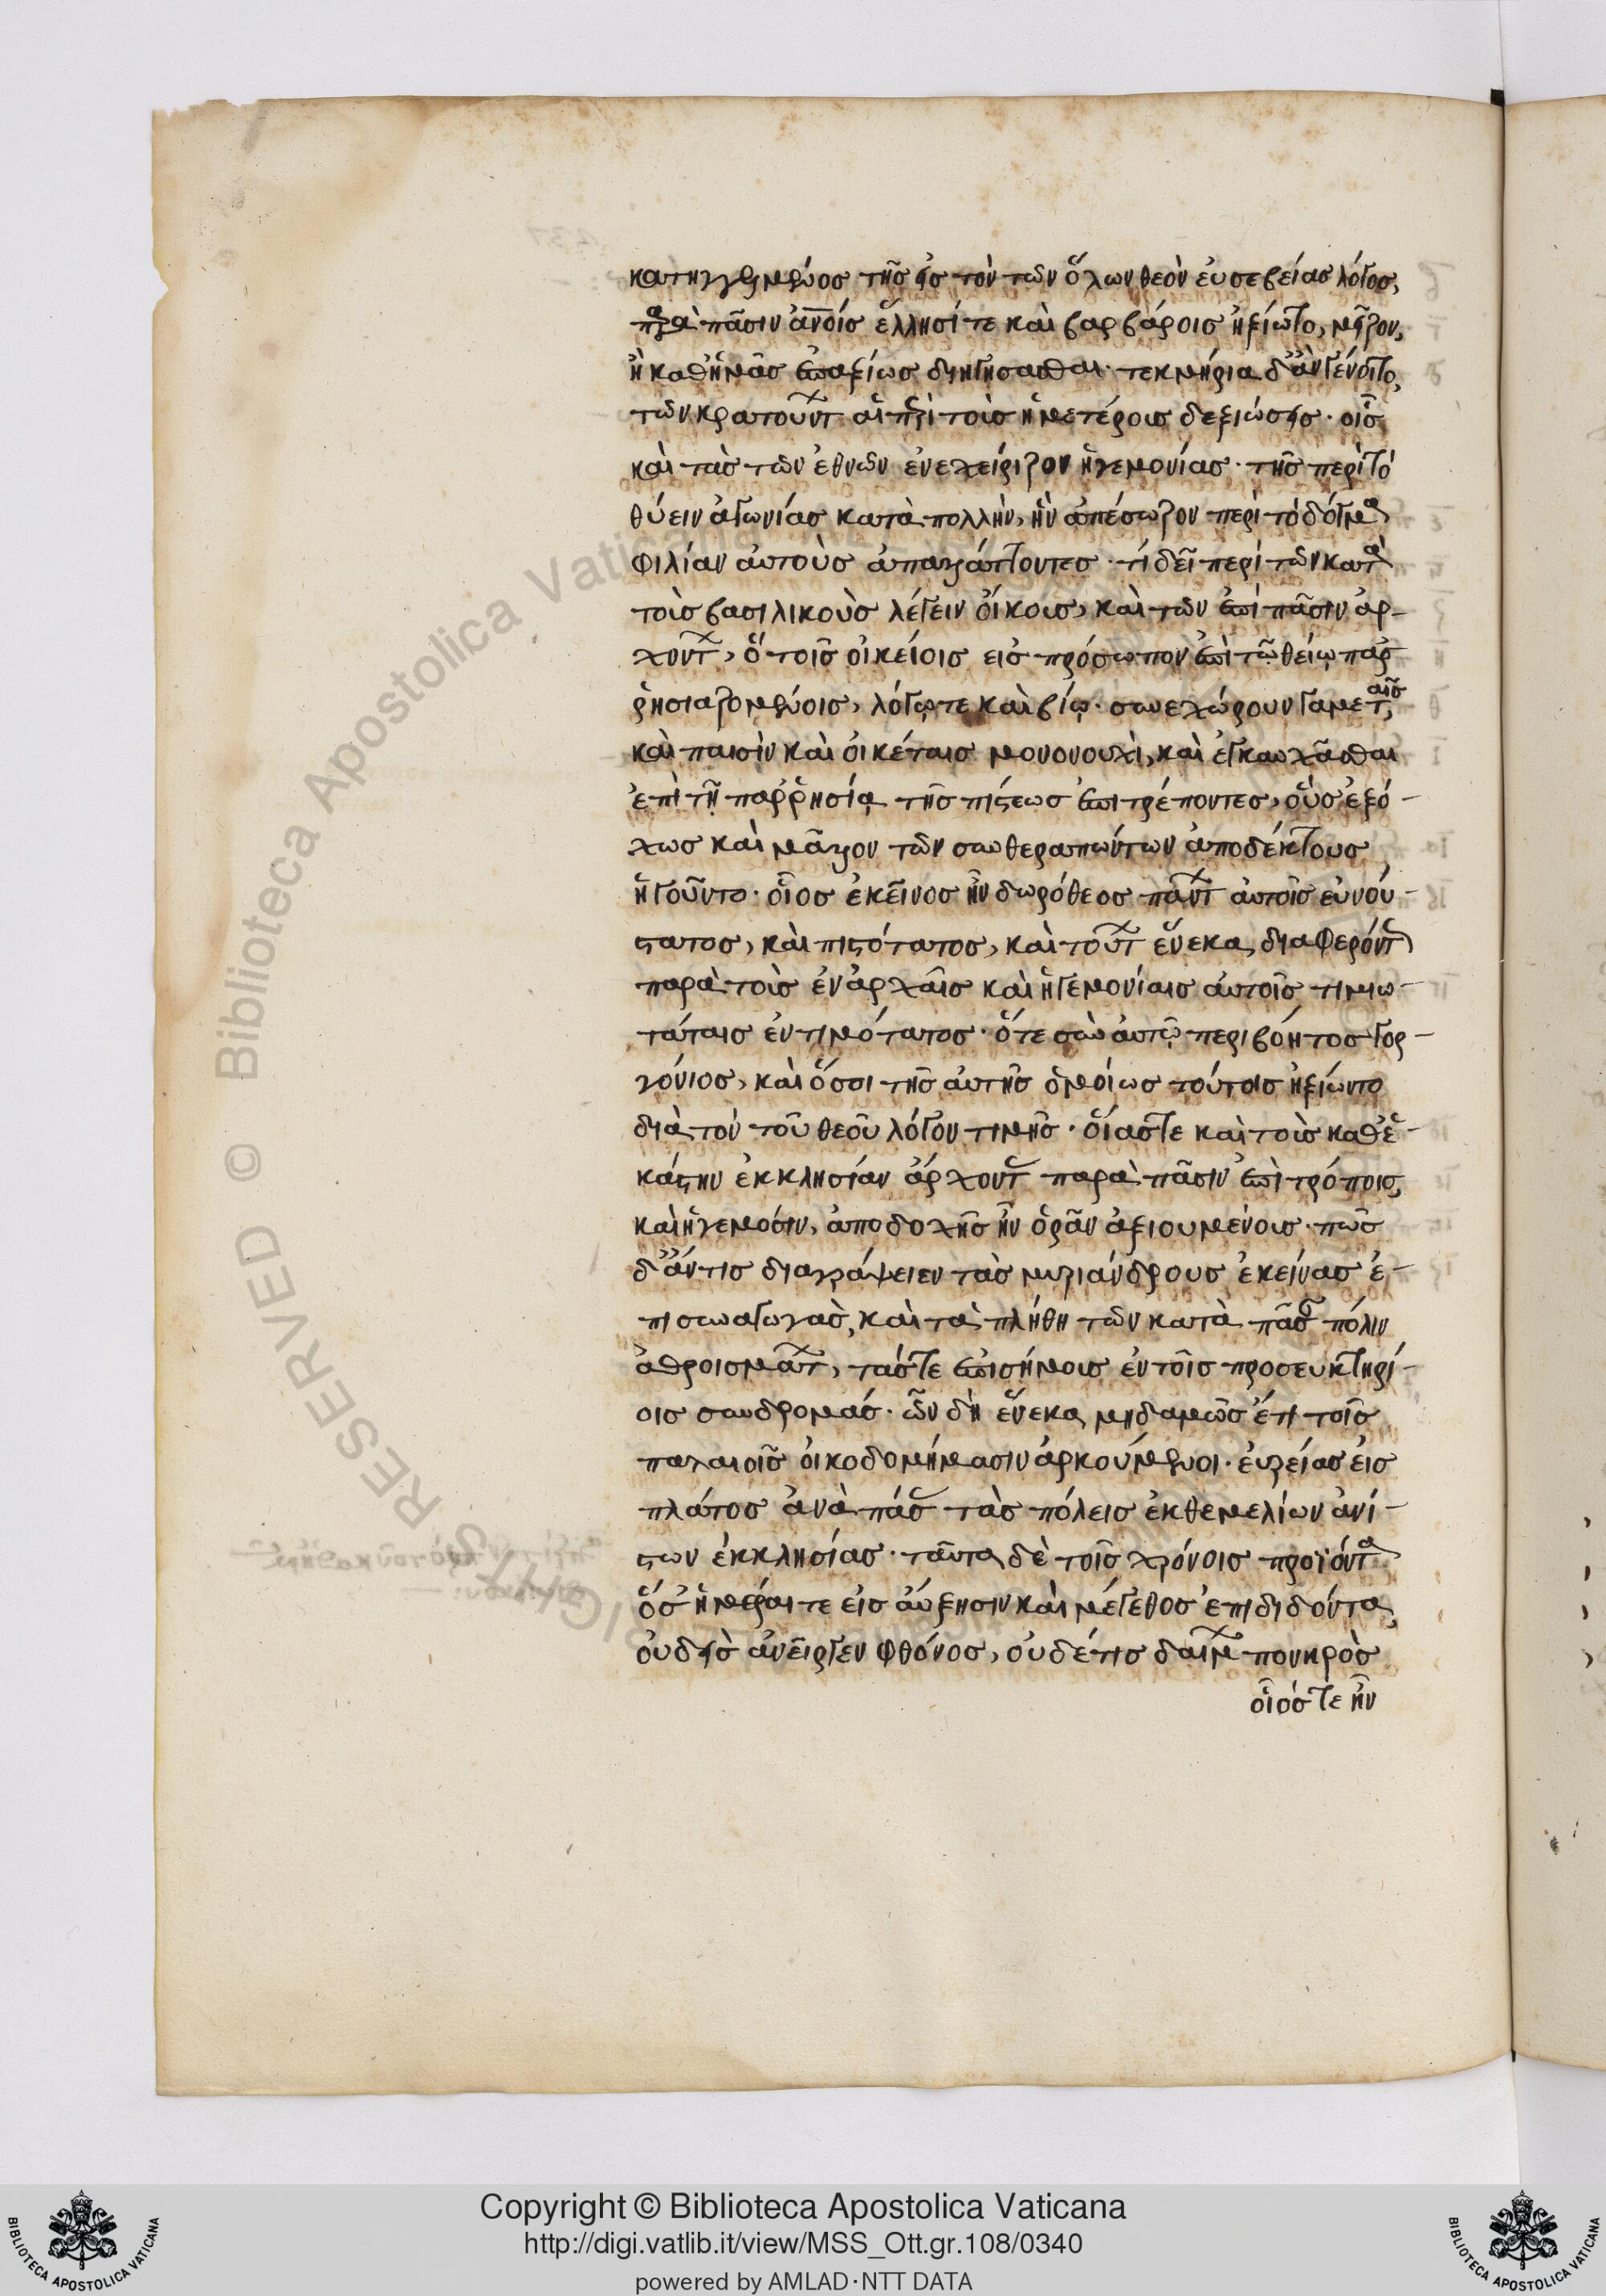 κατηγγελμένος τῆς εἰς τὸν τῶν ὅλων θεὸν εὐσεβείας λόγος,
παρὰ πᾶσιν ἀνοις ἕλλησί τε καὶ βαρβάροις ἠξίωτο, μεῖζον,
ἢ καθ' ἡμᾶς ἐπαξίως διηγήσασθαι· τεκμήρια δ' ἂν γένοιτο,
τῶν κρατούντων αἱ περὶ τοὺς ἡμετέρους δεξιώσεις· οἷς
καὶ τὰς τῶν ἐθνῶν ἐνεχείριζον ἡγεμονίας· τῆς περὶ τὸ
θύειν ἀγωνίας κατὰ πολλὴν, ἣν ἀπέσωζον περὶ τὸ δόγμα
φιλίαν αὐτοὺς ἀπαλλάττοντες· τί δεῖ περὶ τῶν κατὰ
τοὺς βασιλικοὺς λέγειν οἴκους, καὶ τῶν ἐπὶ πᾶσιν ἀρ-
χόντων, οἳ τοῖς οἰκείοις εἰς πρόσωπον ἐπὶ τῷ θείῳ παρ
ρησιαζομένοις, λόγῳ τε καὶ βίῳ· συνεχώρουν γαμεταῖς,
καὶ παισὶν καὶ οἰκέταις μονονουχὶ, καὶ ἐγκαυχᾶσθαι
ἐπὶ τῇ παρρησίᾳ τῆς πίστεως ἐπιτρέποντες, οὓς ἐξό-
χως καὶ μᾶλλον τῶν συνθεραπόντων ἀποδέκτους
ἡγοῦντο· οἷος ἐκεῖνος ἦν δωρόθεος πάντων αὐτοῖς εὐνού-
στατος, καὶ πιστότατος, καὶ τούτων ἕνεκα διαφερόντως
παρὰ τοῖς ἐν ἀρχαῖς καὶ ἡγεμονίαις αὐτοῖς τιμιω-
τάταις ἐντιμότατος· ὅ τε σὺν αὐτῷ περιβόητος γορ-
γόνιος, καὶ ὅσοι τῆς αὐτῆς ὁμοίως τούτοις ἠξίωντο
διὰ τὸν τοῦ θεοῦ λόγον τιμῆς· οἵας τε καὶ τοὺς καθ' ἑ-
κάστην ἐκκλησίαν ἄρχοντας παρὰ πᾶσιν ἐπιτρόποις,
καὶ ἡγεμόσιν, ἀποδοχῆς ἦν ὁρᾶν ἀξιουμένους· πῶς
δ' ἄν τις διαγράψειεν τὰς μυριάνδρους ἐκείνας ἐ-
πισυναγωγὰς, καὶ τὰ πλήθη τῶν κατὰ πᾶσαν πόλιν
ἀθροισμάτων, τάς τε ἐπισήμους ἐν τοῖς προσευκτηρί-
οις συνδρομάς· ὧν δὴ ἕνεκα μηδαμῶς ἔτι τοῖς
παλαιοῖς οἰκοδομήμασιν ἀρκούμενοι· εὐρείας εἰς
πλάτος ἀνὰ πάσας τὰς πόλεις ἐκ θεμελίων ἀνί-
στων ἐκκλησίας· ταῦτα δὲ τοῖς χρόνοις προϊόντα
ὁσημέραι τε εἰς αὔξησιν καὶ μέγεθος ἐπιδιδόντα,
οὐδεὶς ἀνεῖργεν φθόνος, οὐδέ τις δαίμων πονηρὸς
οἷός τε ἦν
Copyright © Biblioteca Apostolica Vaticana
http://digi.vatlib.it/view/MSS_Ott.gr.108/0340
powered by AMLAD·NTT DATA